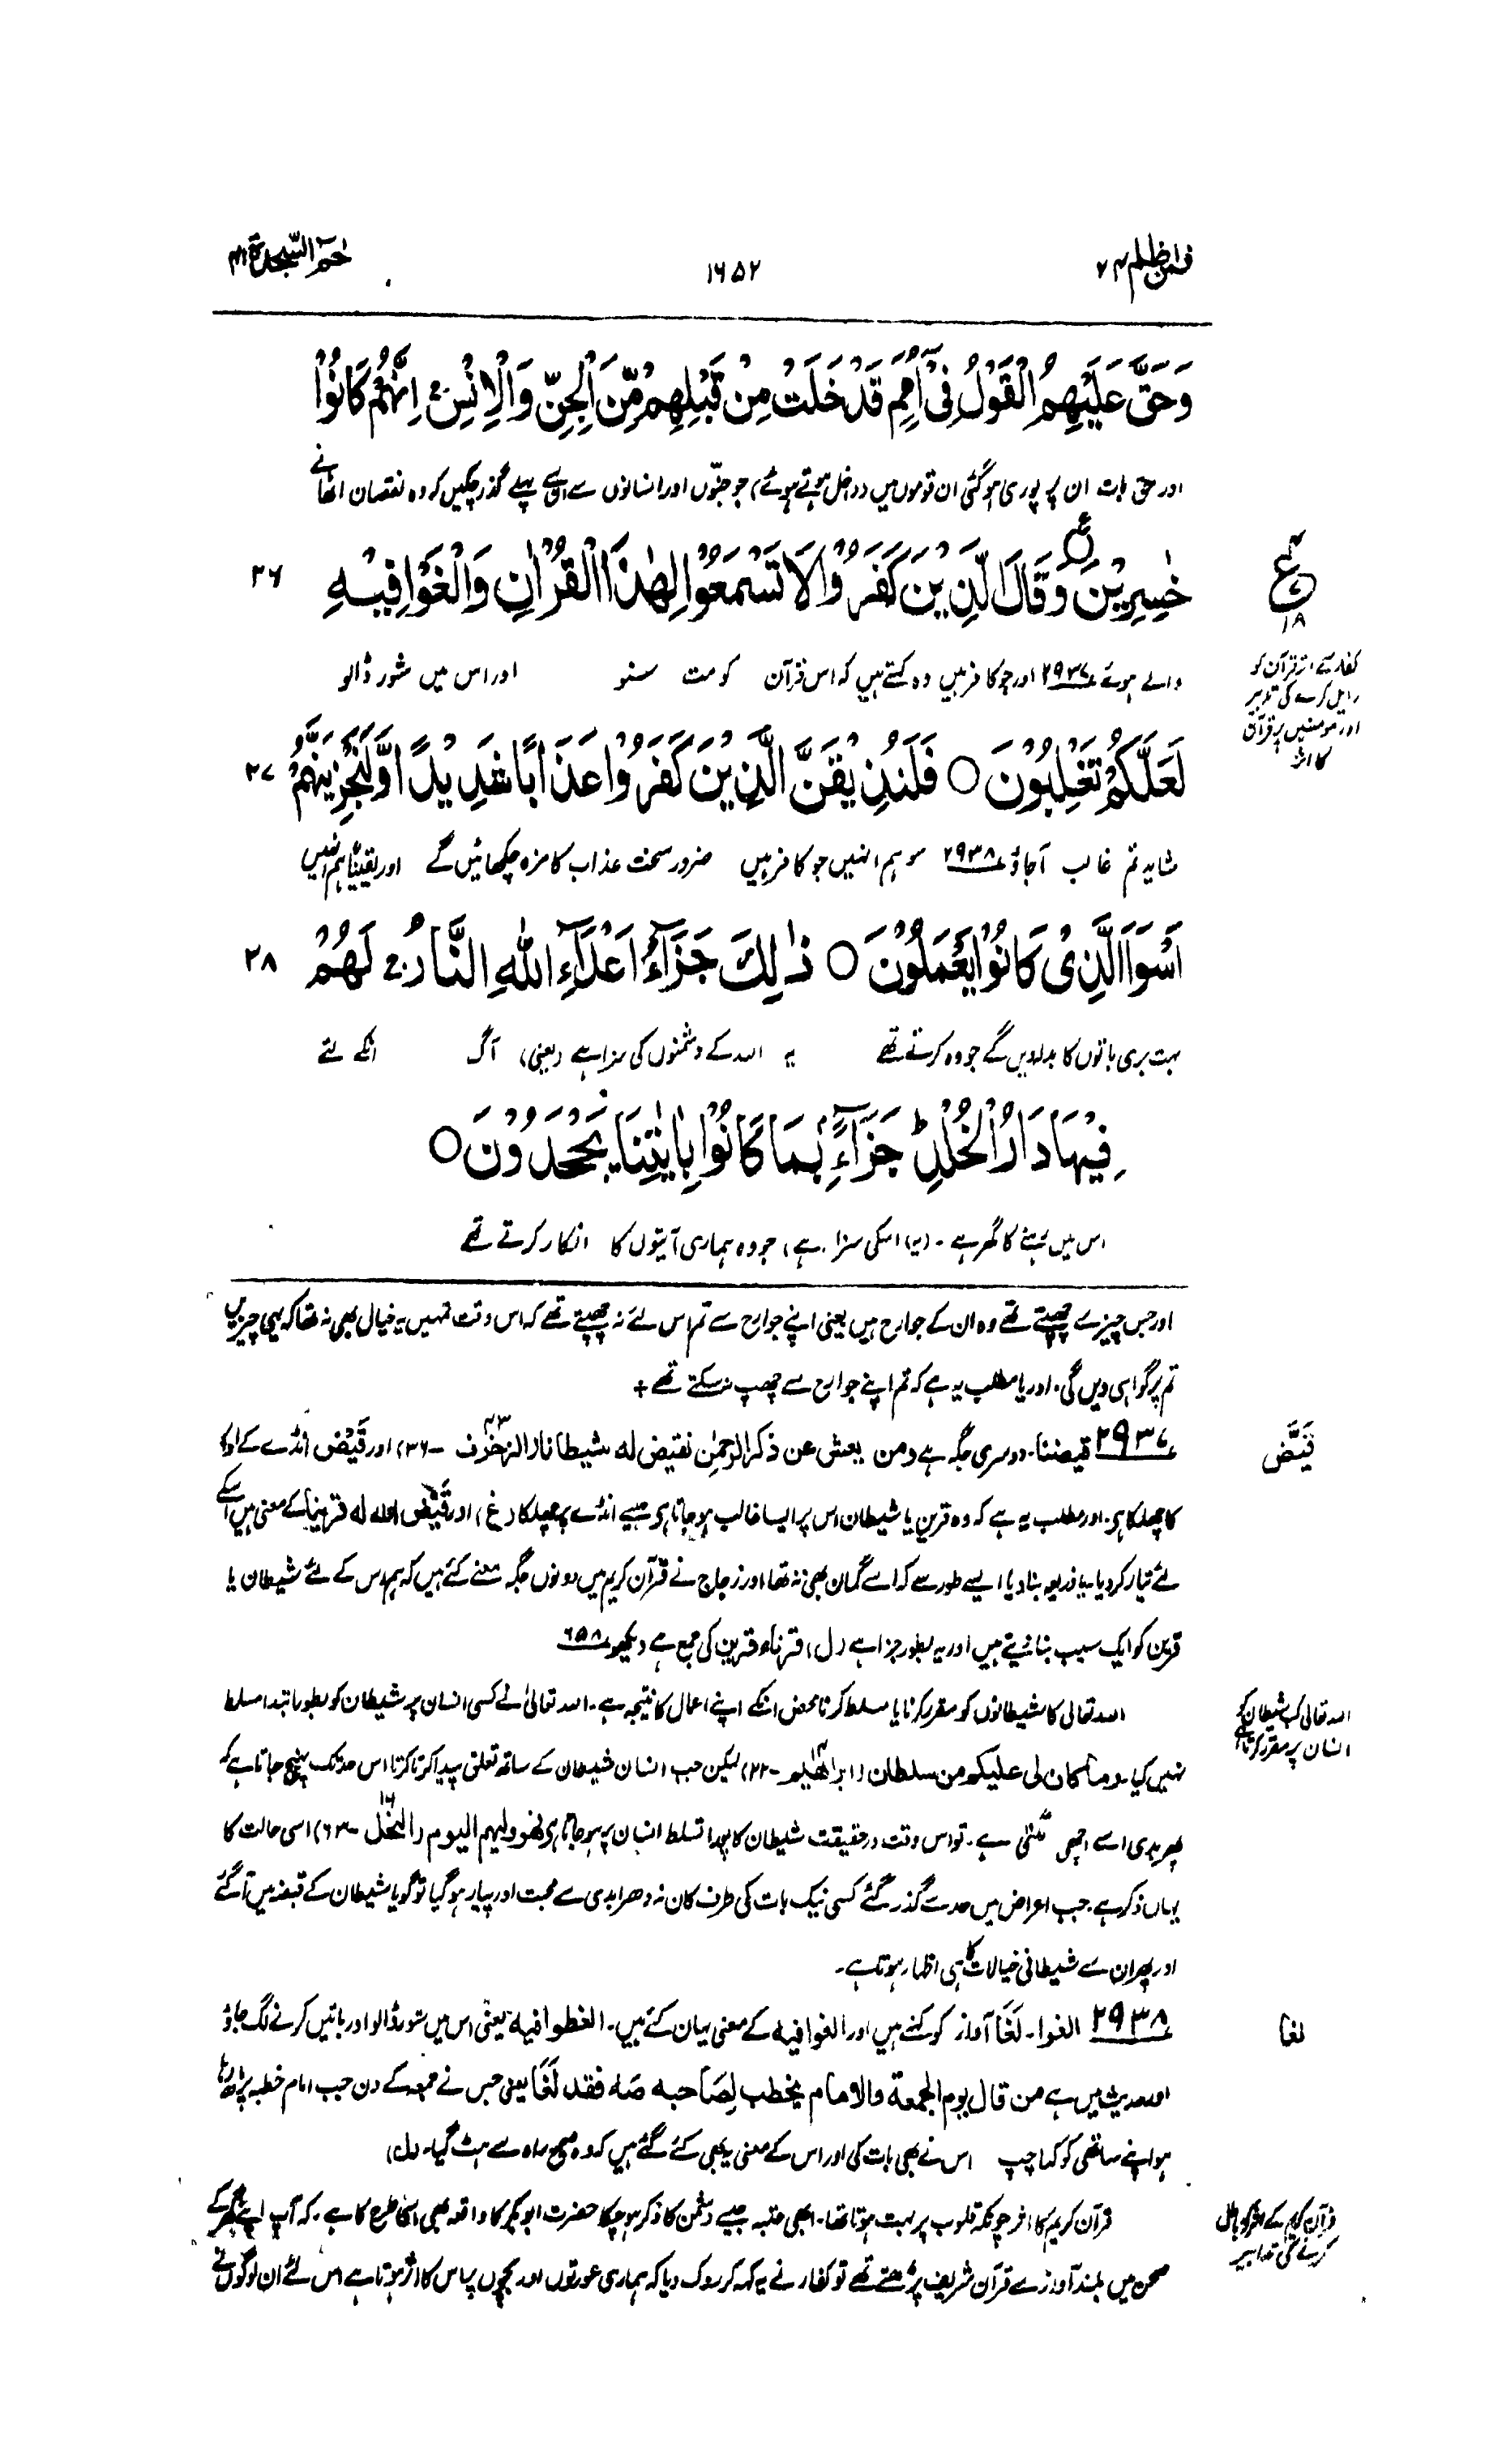 فمن اظلم ۲۴
۱۶۵۲
حٰمٓ السّجدة ۴۱
وَحَقَّ عَلَيْهِمُ الْقَوْلُ فِيْٓ اُمَمٍ قَدْ خَلَتْ مِنْ قَبْلِهِمْ مِّنَ الْجِنِّ وَالْاِنْسِ ۚ اِنَّهُمْ كَانُوْا
اور حق بات ان پر پوری ہوگئی ان قوموں میں (داخل ہوتے ہوئے) جو جنّوں اور انسانوں سے ان سے پہلے گذر چکیں کہ وہ نقصان اٹھانے
خٰسِرِيْنَ ۝ وَقَالَ الَّذِيْنَ كَفَرُوْا لَا تَسْمَعُوْا لِهٰذَا الْقُرْاٰنِ وَالْغَوْا فِيْهِ ۲۶
والے ہوئے ۲۹۳۷ اور جو کافر ہیں وہ کہتے ہیں کہ اس قرآن کو مت سنو اور اس میں شور ڈالو
ع
۱۸
کفار کے اثر قرآن کو
زایل کرنے کی تدبیر
اور مومنین پر قرآن
کا اثر
لَعَلَّكُمْ تَغْلِبُوْنَ ۝ فَلَنُذِيْقَنَّ الَّذِيْنَ كَفَرُوْا عَذَابًا شَدِيْدًا وَّلَنَجْزِيَنَّهُمْ ۲۷
شاید تم غالب آجاؤ ۲۹۳۸ سو ہم انہیں جو کافر ہیں ضرور سخت عذاب کا مزہ چکھائیں گے اور یقیناً ہم انہیں
اَسْوَاَ الَّذِيْ كَانُوْا يَعْمَلُوْنَ ۝ ذٰلِكَ جَزَآءُ اَعْدَآءِ اللّٰهِ النَّارُ ۚ لَهُمْ ۲۸
بہت بری باتوں کا بدلہ دیں گے جو وہ کرتے تھے یہ اللہ کے دشمنوں کی سزا ہے (یعنی) آگ انکے لئے
فِيْهَا دَارُ الْخُلْدِ ؕ جَزَآءًۢ بِمَا كَانُوْا بِاٰيٰتِنَا يَجْحَدُوْنَ ۝
اس میں رہنے کا گھر ہے ۔ (یہ) اسکی سزا (ہے) جو وہ ہماری آیتوں کا انکار کرتے تھے
اور جس چیز سے چھپتے تھے وہ ان کے جوارح ہیں یعنی اپنے جوارح سے تم اس لئے نہ چھپتے تھے کہ اس وقت تمہیں یہ خیال بھی نہ تھا کہ یہی چیزیں
تم پر گواہی دیں گی۔ اور یا مطلب یہ ہے کہ تم اپنے جوارح سے چھپ نہ سکتے تھے +
۲۹۳۷ قیضنا۔ دوسری جگہ ہے ومن یعش عن ذکر الرحمٰن نقیض له شیطانا (الزخرف ۴۳ ـ۳۶) اور قَیْض انڈے کے اوپر
قَیَّض
کا چھلکا ہے۔ اور مطلب یہ ہے کہ وہ قرین یا شیطان اس پر ایسا غالب ہوجاتا ہے جیسے انڈے پر چھلکا (غ) اور قَیَّض الله له قرینا کے معنی ہیں اسکے
لئے تیار کردیا۔ یا ذریعہ بنا دیا ایسے طور سے کہ اسے گمان بھی نہ تھا اور زجاج نے قرآن کریم میں دونوں جگہ معنے کئے ہیں کہ ہم اس کے لئے شیطان یا
قرین کو ایک سبب بنا دیتے ہیں اور یہ بطور جزا ہے (ل) قرناء قرین کی جمع ہے دیکھو ۶۵۸
اللہ تعالی کا شیطانوں کو مقرر کرنا یا مسلط کرنا محض انکے اپنے اعمال کا نتیجہ ہے۔ اللہ تعالیٰ نے کسی انسان پر شیطان کو بطور ابتدا مسلط
اللہ تعالی کب شیطان کو
انسان پر مقرر کرتا ہے
نہیں کیا۔ وما کان لی علیکم من سلطان (ابراھیم ۱۴ـ۲۲) لیکن جب انسان شیطان کے ساتھ تعلق پیدا کرتا کرتا اس حد تک پہنچ جاتا ہے کہ
پھر بدی اسے اچھی لگتی ہے۔ تو اس وقت درحقیقت شیطان کا پورا تسلط انسان پر ہوجاتا ہے فھو ولیھم الیوم (النحل ۱۶ـ۶۳) اسی حالت کا
یہاں ذکر ہے۔ جب اعراض میں حد سے گذر گئے کسی نیک بات کی طرف کان نہ دھرا بدی سے محبت اور پیار ہوگیا تو گویا شیطان کے قبضہ میں آگئے
اور پھر ان سے شیطانی خیالات کا ہی اظہار ہوتا ہے۔
۲۹۳۸ الغوا۔ لَغَا آواز کو کہتے ہیں اور الغوا فیه کے معنی بیان کئے ہیں۔ الغطوا فیه یعنی اس میں شور ڈالو اور باتیں کرنے لگ جاؤ
لغا
اور حدیث میں ہے من قال یوم الجمعة والامام یخطب لِصَاحبه صَه فقد لَغَا یعنی جس نے جمعہ کے دن جب امام خطبہ پڑھ رہا
ہو اپنے ساتھی کو کہا چپ اس نے بھی بات کی اور اس کے معنی یہ بھی کئے گئے ہیں کہ وہ صحیح راہ سے ہٹ گیا۔ (ل)
قرآن کریم کا اثر چونکہ قلوب پر بہت ہوتا تھا۔ ابھی عتبہ جیسے دشمن کا ذکر ہوچکا حضرت ابوبکر کا واقعہ بھی اسی طرح کا ہے۔ کہ آپ اپنے گھر کے
قرآن کریم کے اثر کو باطل
کرنے کی تدابیر
صحن میں بلند آواز سے قرآن شریف پڑھتے تھے تو کفار نے یہ کہہ کر روک دیا کہ ہماری عورتوں اور بچوں پر اس کا اثر ہوتا ہے اس لئے ان لوگوں نے